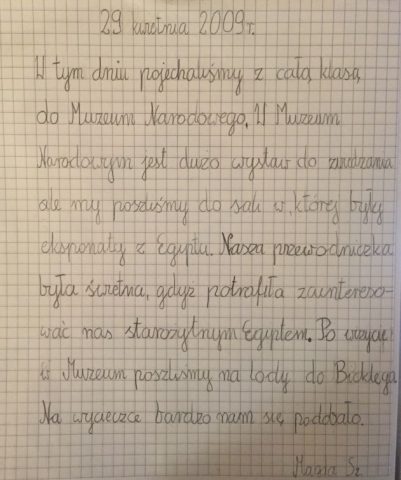 29 kwietnia 2009r.
W tym dniu pojechaliśmy z całą klasą
do Muzeum Narodowego. W Muzeum
Narodowym jest dużo wystaw do zwiedzania
ale my poszliśmy do sali w której były
eksponaty z Egiptu. Nasza przewodniczka
była świetna, gdyż potrafiła zaintereso-
wać nas starożytnym Egiptem. Po wizycie
w Muzeum poszliśmy na lody do
Na wycieczce bardzo nam się podobało.
Sz.